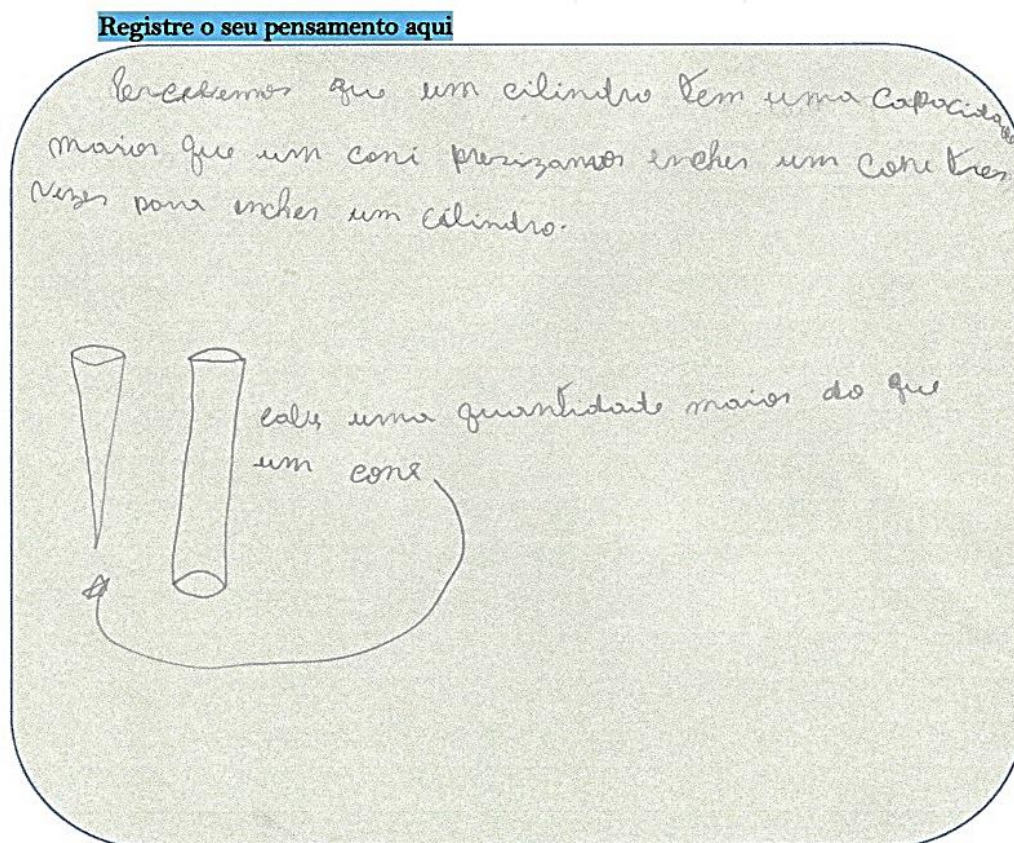 Registre o seu pensamento aqui
Percebemos que um cilindro tem uma capacidade
maior que um coni presizamos encher um coni tres
vezes para encher um cilindro.
cabe uma quantidade maior do que
um cone